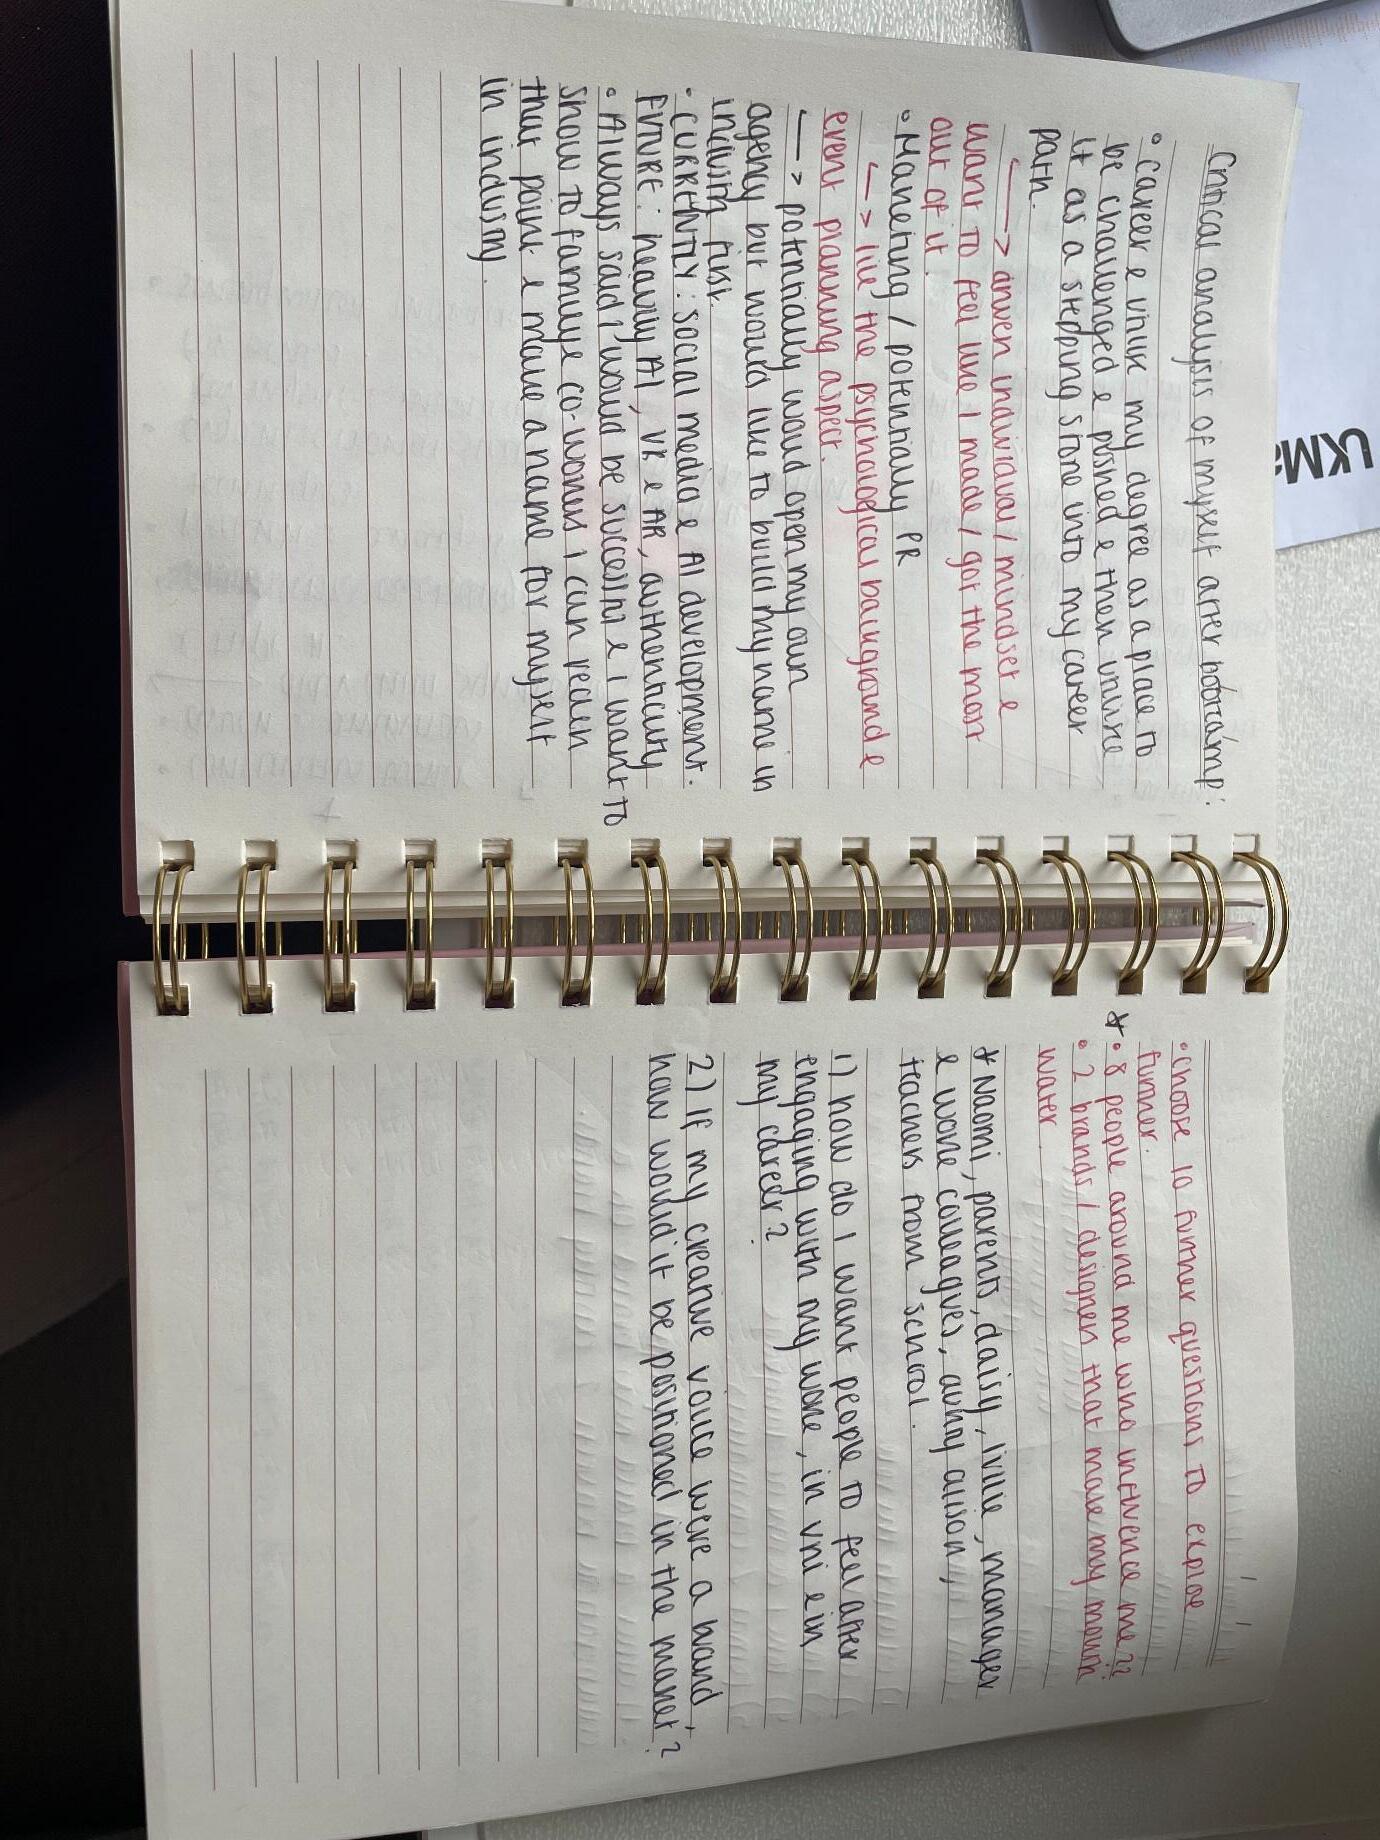 Critical analysis of myself after bootcamp:
• career e uniuk my degree as a place to
be challenged e pushed e then utilise
it as a stepping stone into my career
path.
⟶ driven individual / mindset e
want to feel like I made / got the most
out of it.
• Marketing / potentially PR
⟶ like the psychological background e
event planning aspect.
⟶ potentially would open my own
agency but would like to build my name in
industry first.
• CURRENTLY: social media e AI development.
FUTURE: heavily AI, VR e AR, authenticity
• Always said I would be successful e I want to
show to family e co-workers I can reach
that point e make a name for myself
in industry.
• choose 10 further questions to explore
further.
* • 8 people around me who influence me??
• 2 brands / designers that make my mouth
water.
* Naomi, parents, daisy, livvie, manager
e work colleagues, aunty alison,
teachers from school.
1) how do I want people to feel after
engaging with my work, in uni e in
my career?
2) If my creative voice were a brand,
how would it be positioned in the market?
UKMa